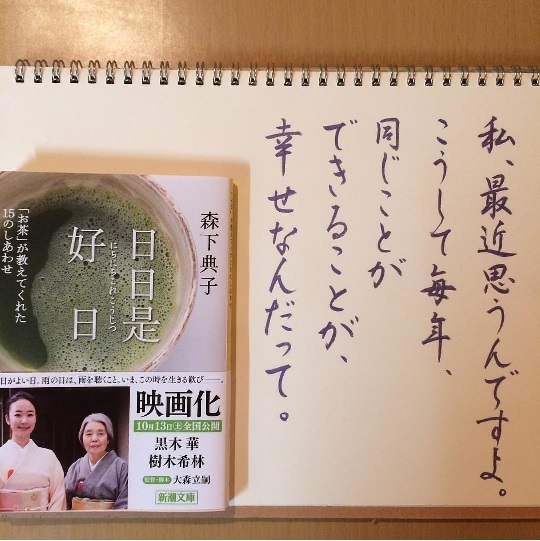 私、最近思うんですよ。
こうして毎年、
同じことが
できることが、
幸せなんだって。
森下典子
日日是
好日
にちにちこれこうじつ
「お茶」が教えてくれた
15のしあわせ
日がよい日。雨の日は、雨を聴くこと。いま、この時を生きる歓び――。
映画化
10月13日㊏全国公開
黒木 華
樹木希林
監督・脚本 大森立嗣
新潮文庫